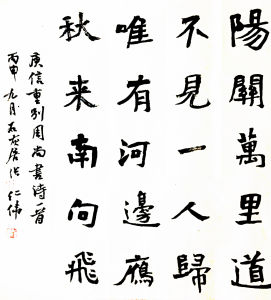 陽關萬里道
不見一人歸
唯有河邊鴈
秋来南向飛
庾信重别周尚書詩一首
丙申九月 居 仁偉